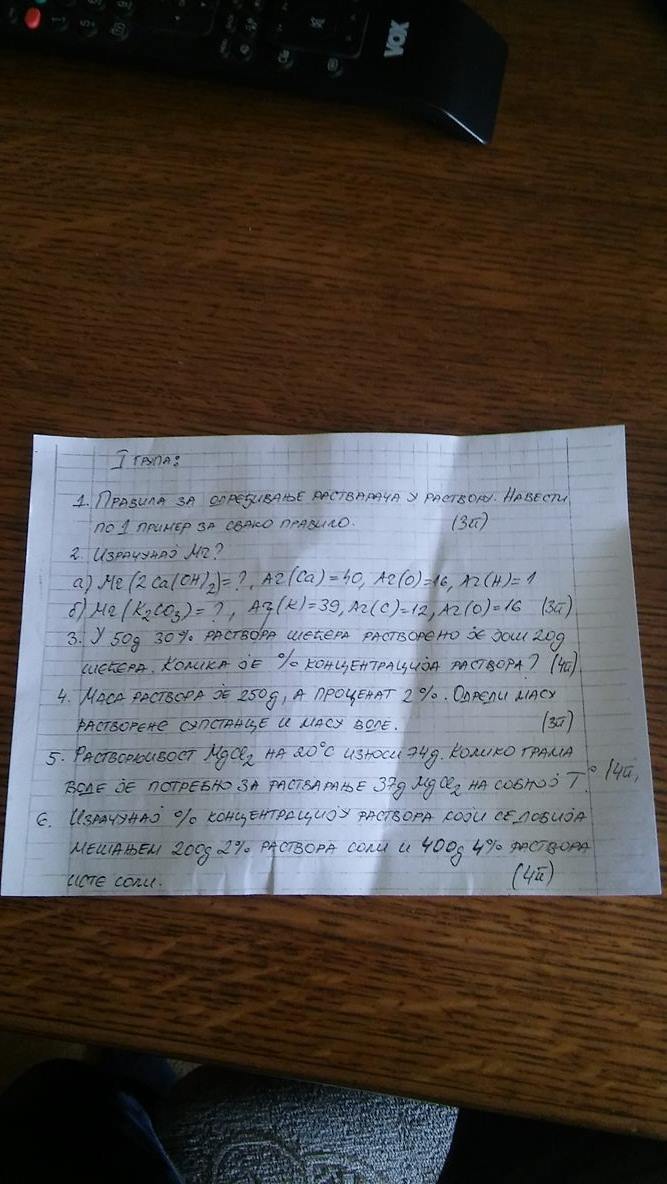 VOX
I ГРУПА:
1. ПРАВИЛА ЗА ОДРЕЂИВАЊЕ РАСТВАРАЧА У РАСТВОРУ. НАВЕСТИ
ПО 1 ПРИМЕР ЗА СВАКО ПРАВИЛО. (3п)
2. ИЗРАЧУНАЈ Mr?
а) Mr(2Ca(OH)₂)=?, Ar(Ca)=40, Ar(O)=16, Ar(H)=1
б) Mr(K₂CO₃)=?, Ar(K)=39, Ar(C)=12, Ar(O)=16 (3п)
3. У 50g 30% РАСТВОРА ШЕЋЕРА РАСТВОРЕНО ЈЕ ЈОШ 20g
ШЕЋЕРА. КОЛИКА ЈЕ % КОНЦЕНТРАЦИЈА РАСТВОРА? (4п)
4. МАСА РАСТВОРА ЈЕ 250g, А ПРОЦЕНАТ 2%. ОДРЕДИ МАСУ
РАСТВОРЕНЕ СУПСТАНЦЕ И МАСУ ВОДЕ. (3п)
5. РАСТВОРЉИВОСТ MgCl₂ НА 20°C ИЗНОСИ 74g. КОЛИКО ГРАМА
ВОДЕ ЈЕ ПОТРЕБНО ЗА РАСТВАРАЊЕ 37g MgCl₂ НА СОБНОЈ T.° (4п)
6. ИЗРАЧУНАЈ % КОНЦЕНТРАЦИЈУ РАСТВОРА КОЈИ СЕ ДОБИЈА
МЕШАЊЕМ 200g 2% РАСТВОРА СОЛИ И 400g 4% РАСТВОРА
ИСТЕ СОЛИ. (4п)